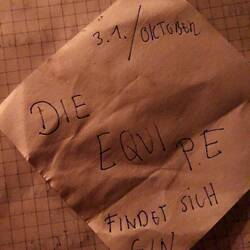 3.1./OKTOBER
DIE
EQUIPE
FINDET SICH
EIN